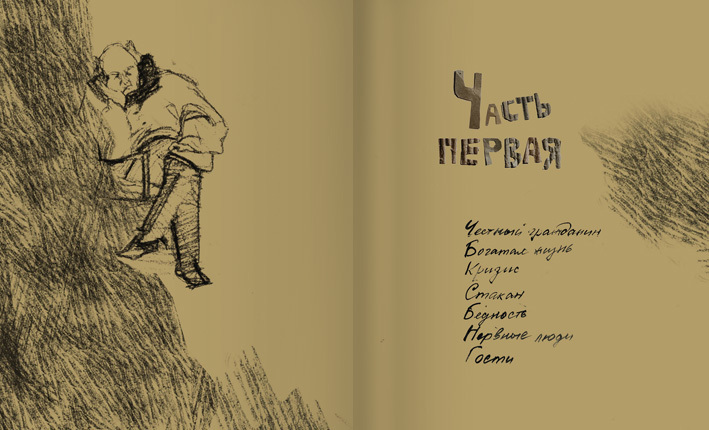 Часть
первая
Честный гражданин
Богатая жизнь
Кризис
Стакан
Бедность
Нервные люди
Гости